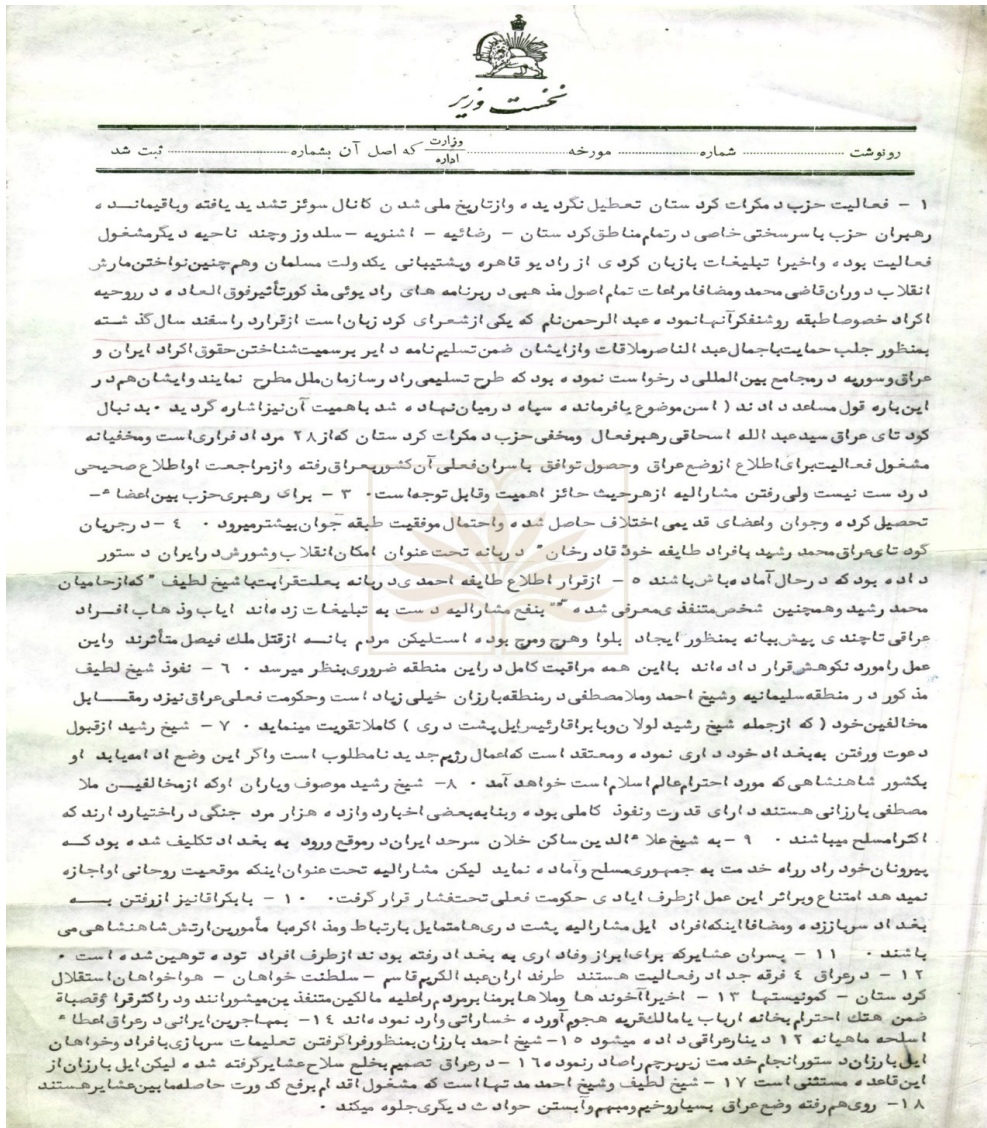 نخست وزیر
رونوشت ........ شماره ........ مورخه ........ وزارت اداره که اصل آن بشماره ........ ثبت شد
۱ - فعالیت حزب دمکرات کردستان تعطیل نگردیده وازتاریخ ملی شدن کانال سوئز تشدید یافته وباقیمانده
رهبران حزب باسرسختی خاصی درتمام مناطق کردستان - رضائیه - اشنویه - سلدوز وچند ناحیه دیگرمشغول
فعالیت بوده واخیرا تبلیغات بازبان کردی از رادیو قاهره وپشتیبانی یکدولت مسلمان وهم چنین نواختن مارش
انقلاب دوران قاضی محمد ومضافامراعات تمام اصول مذهبی دربرنامه های رادیوئی مذکورتأثیرفوق العاده درروحیه
اکراد خصوصاطبقه روشنفکرآنهانموده عبدالرحمن نام که یکی ازشعرای کرد زبان است ازقرارد راسفند سال گذشته
بمنظور جلب حمایت باجمال عبدالناصرملاقات وازایشان ضمن تسلیم نامه دایر برسمیت شناختن حقوق اکراد ایران و
عراق وسوریه درمجامع بین المللی درخواست نموده بود که طرح تسلیمی رادرسازمان ملل مطرح نمایند وایشان هم در
این باره قول مساعد دادند ( اسن موضوع یافرمانده سپاه درمیان نهاده شد باهمیت آن نیزاشاره گردید ۰ بدنبال
کودتای عراق سیدعبدالله اسحاقی رهبرفعال ومخفی حزب دمکرات کردستان که از۲۸ مرداد فراری است ومخفیانه
مشغول فعالیت برای اطلاع ازوضع عراق وحصول توافق باسران فعلی آن کشوربعراق رفته وازمراجعت اواطلاع صحیحی
دردست نیست ولی رفتن مشارالیه ازهرحیث حائز اهمیت وقابل توجه است۰ ۳ - برای رهبری حزب بین اعضاء -
تحصیل کرده وجوان واعضای قدیمی اختلاف حاصل شده واحتمال موفقیت طبقه جوان بیشترمیرود ۰ ۴ - درجریان
کودتای عراق محمد رشید بافراد طایفه خود قادرخان" دربانه تحت عنوان امکان انقلاب وشورش درایران دستور
داده بود که درحال آماده باش باشند ۵ - ازقرار اطلاع طایفه احمدی دربانه بعلت قرابت باشیخ لطیف "که ازحامیان
محمد رشید وهمچنین شخص متنفذی معرفی شده" بنفع مشارالیه دست به تبلیغات زده اند ایاب وذهاب افراد
عراقی تاچندی پیش ببانه بمنظور ایجاد بلوا وهرج ومرج بوده است لیکن مردم بانه ازقتل ملک فیصل متأثرند واین
عمل رامورد نکوهش قرار داده اند بااین همه مراقبت کامل دراین منطقه ضروری بنظر میرسد ۰ ۶ - نفوذ شیخ لطیف
مذکور در منطقه سلیمانیه وشیخ احمد وملامصطفی درمنطقه بارزان خیلی زیاد است وحکومت فعلی عراق نیزدرمقابل
مخالفین خود ( که ازجمله شیخ رشید لولان وبابراقارئیس ایل پشت دری ) کاملا تقویت مینماید ۰ ۷ - شیخ رشید ازقبول
دعوت ورفتن به بغداد خود داری نموده ومعتقد است که اعمال رژیم جدید نامطلوب است واگر این وضع ادامه یابد او
بکشور شاهنشاهی که مورد احترام عالم اسلام است خواهد آمد ۰ ۸- شیخ رشید موصوف ویاران اوکه ازمخالفین ملا
مصطفی بارزانی هستند دارای قدرت ونفوذ کاملی بوده وبنابه بعضی اخبار دوازده هزار مرد جنگی دراختیاردارند که
اکثرامسلح میباشند ۰ ۹ - به شیخ علاءالدین ساکن خلان سرحد ایران درموقع ورود به بغداد تکلیف شده بود که
پیروان خود رادرراه خدمت به جمهوری مسلح وآماده نماید لیکن مشارالیه تحت عنوان اینکه موقعیت روحانی اواجازه
نمیدهد امتناع وبراثر این عمل ازطرف ایادی حکومت فعلی تحت فشار قرار گرفت۰ ۱۰ - بابکراقانیز ازرفتن به
بغداد سرباززده ومضافااینکه افراد ایل مشارالیه پشت دری هامتمایل بارتباط ومذاکره با مأمورین ارتش شاهنشاهی می
باشند ۰ ۱۱ - پسران عشایرکه برای ابراز وفاداری به بغداد رفته بودند ازطرف افراد توده توهین شده است ۰
۱۲ - درعراق ۴ فرقه جدا درفعالیت هستند طرفداران عبدالکریم قاسم - سلطنت خواهان - هواخواهان استقلال
کردستان - کمونیستها ۱۳ - اخیراآخوندها وملاها برمنابرمردم راعلیه مالکین متنفذین میشورانند ودراکثرقرا وقصباة
ضمن هتک احترام بخانه ارباب یامالک قریه هجوم آورده خساراتی وارد نموده اند ۱۴ - بمهاجرین ایرانی درعراق اعطاء
اسلحه ماهیانه ۱۲ دینارعراقی داده میشود ۱۵ - شیخ احمد بارزان بمنظورفراگرفتن تعلیمات سربازی بافراد وخواهان
ایل بارزان دستورانجام خدمت زیرپرچم راصادرنموده ۱۶ - درعراق تصمیم بخلع سلاح عشایرگرفته شده لیکن ایل بارزان از
این قاعده مستثنی است ۱۷ - شیخ لطیف وشیخ احمد مدتهااست که مشغول اقدام برفع کدورت حاصله مابین عشایرهستند
۱۸ - روی هم رفته وضع عراق بسیاروخیم ومبهم وآبستن حوادث دیگری جلوه میکند ۰